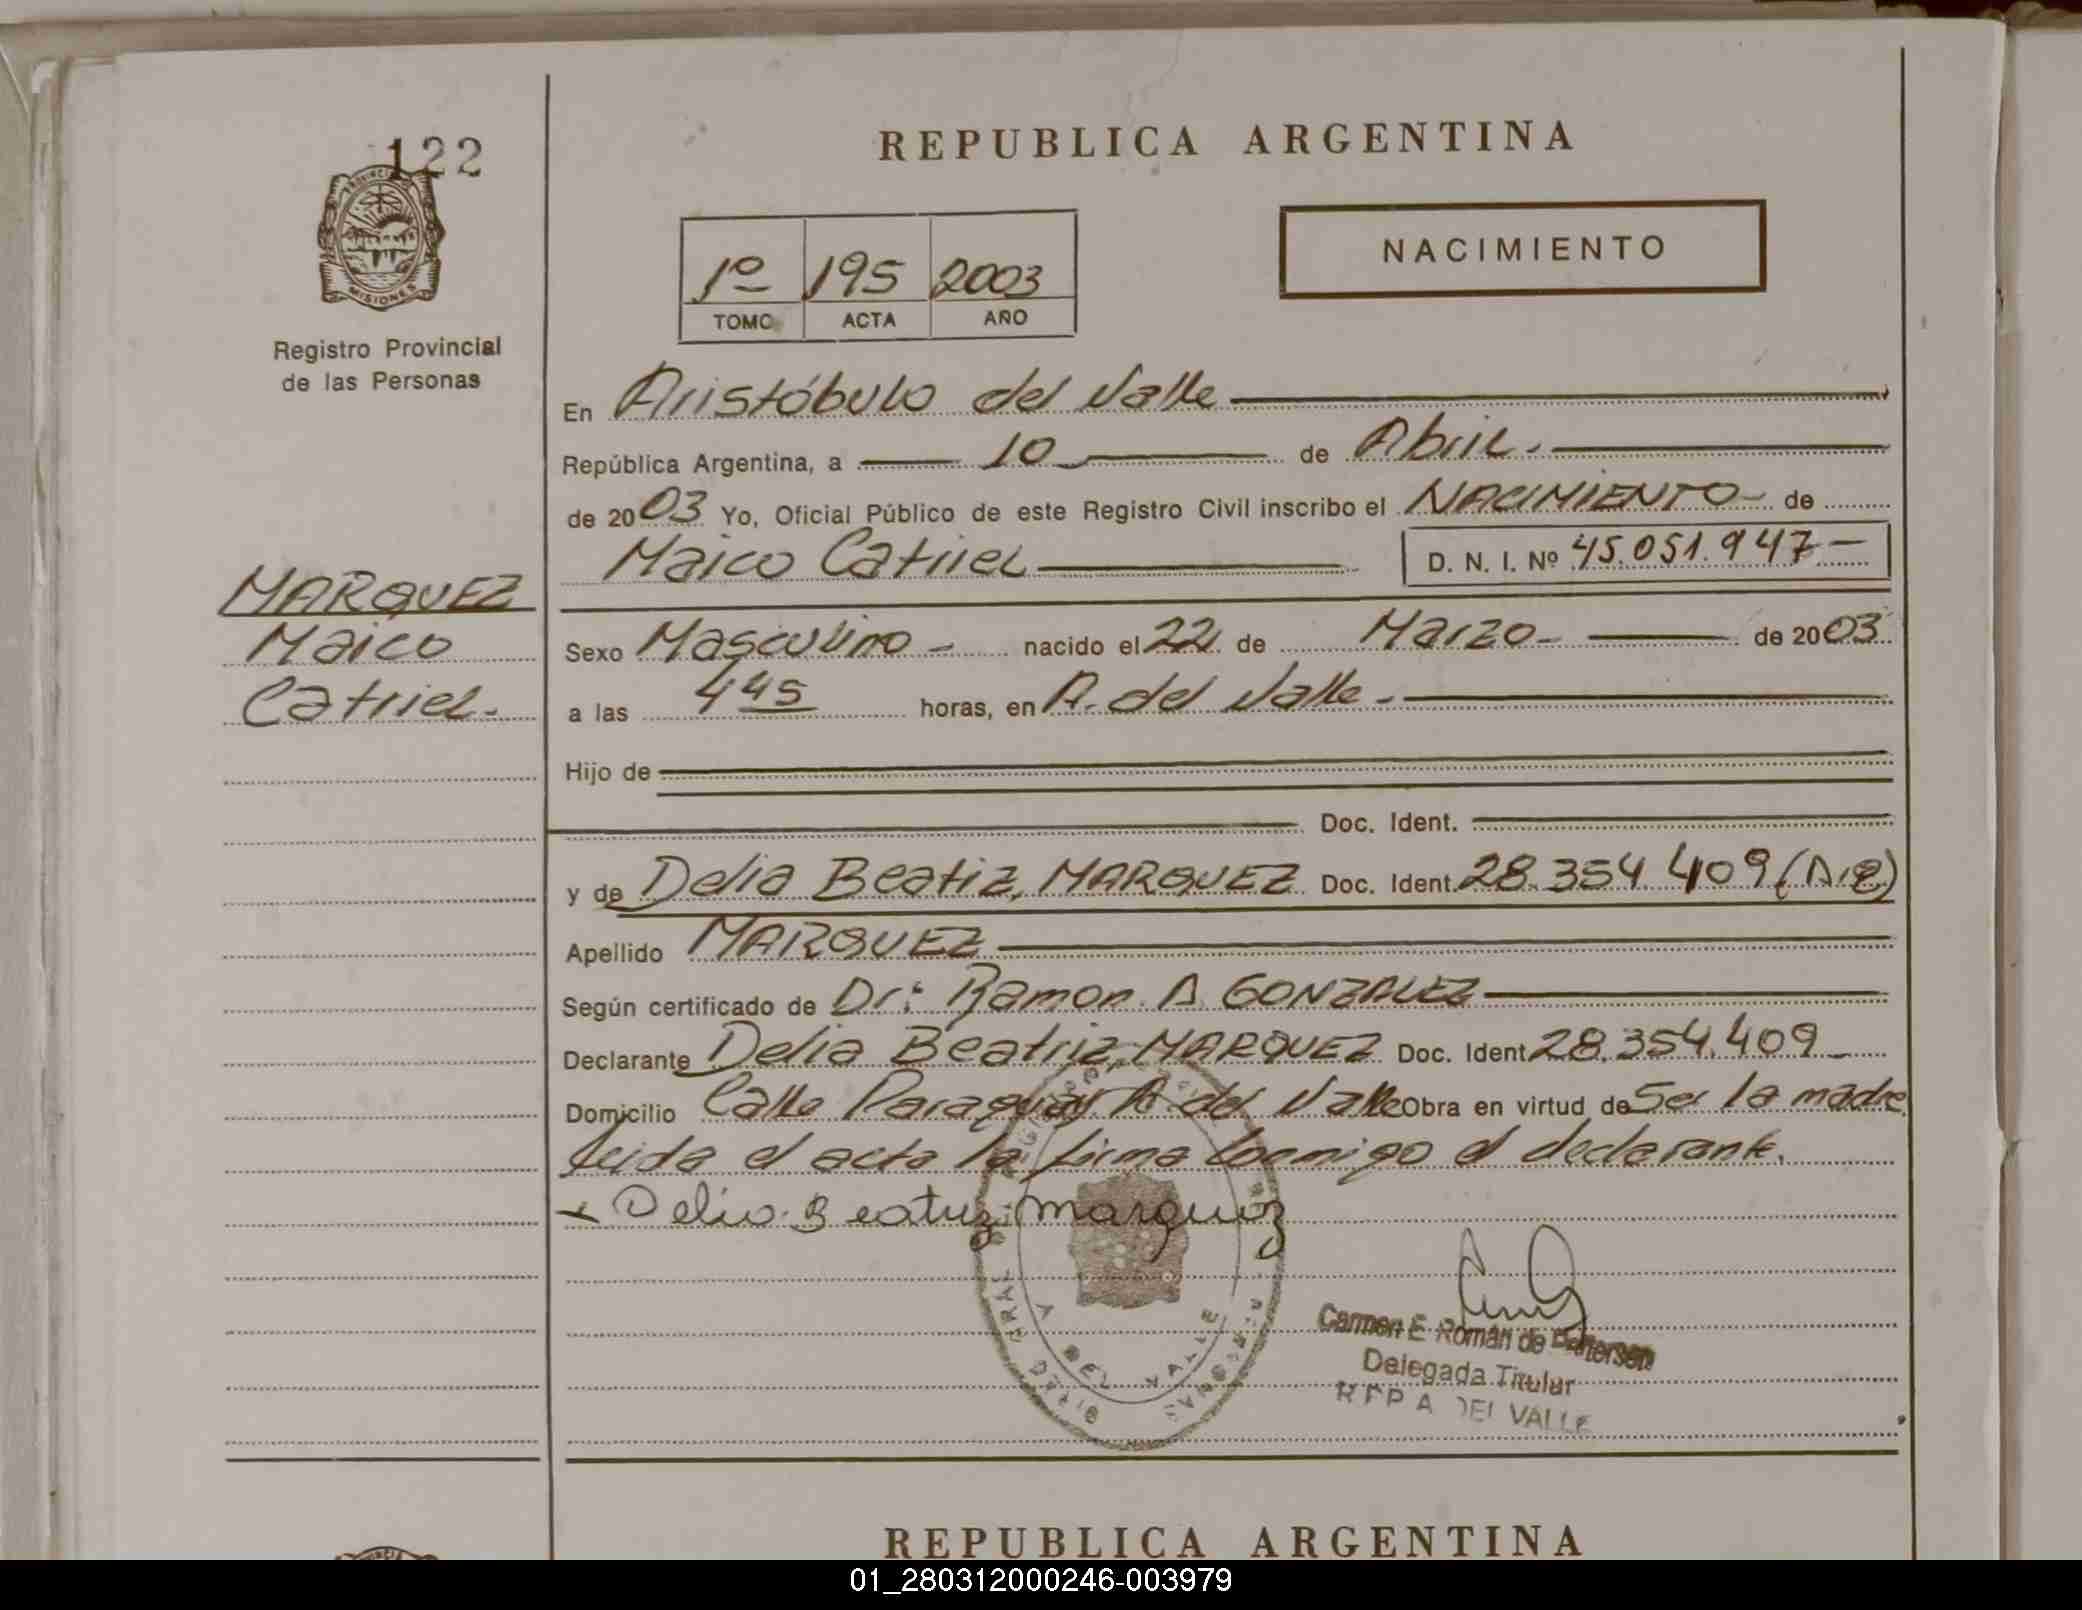 122
PROVINCIA
MISIONES
Registro Provincial
de las Personas
MARQUEZ
Maico
Catriel.
REPUBLICA ARGENTINA
1º 195 2003
TOMO ACTA AÑO
NACIMIENTO
En Aristóbulo del Valle
República Argentina, a 10 de Abril.
de 2003 Yo, Oficial Público de este Registro Civil inscribo el NACIMIENTO de
Maico Catriel D. N. I. Nº 45.051.947
Sexo Masculino nacido el 22 de Marzo de 2003
a las 4 45 horas, en A. del Valle
Hijo de
Doc. Ident.
y de Delia Beatriz, MARQUEZ Doc. Ident. 28.354.409
Apellido MARQUEZ
Según certificado de Dr: Ramon A. GONZALEZ
Declarante Delia Beatriz, MARQUEZ Doc. Ident 28.354.409
Domicilio Calle Paraguay A. del Valle Obra en virtud de Ser la madre
leida el acta la firma conmigo el declarante.
x Delia Beatriz Marquez
Carmen E. Román de
Delegada Titular
A DEL VALLE
DEL VALLE
REPUBLICA ARGENTINA
01_280312000246-003979